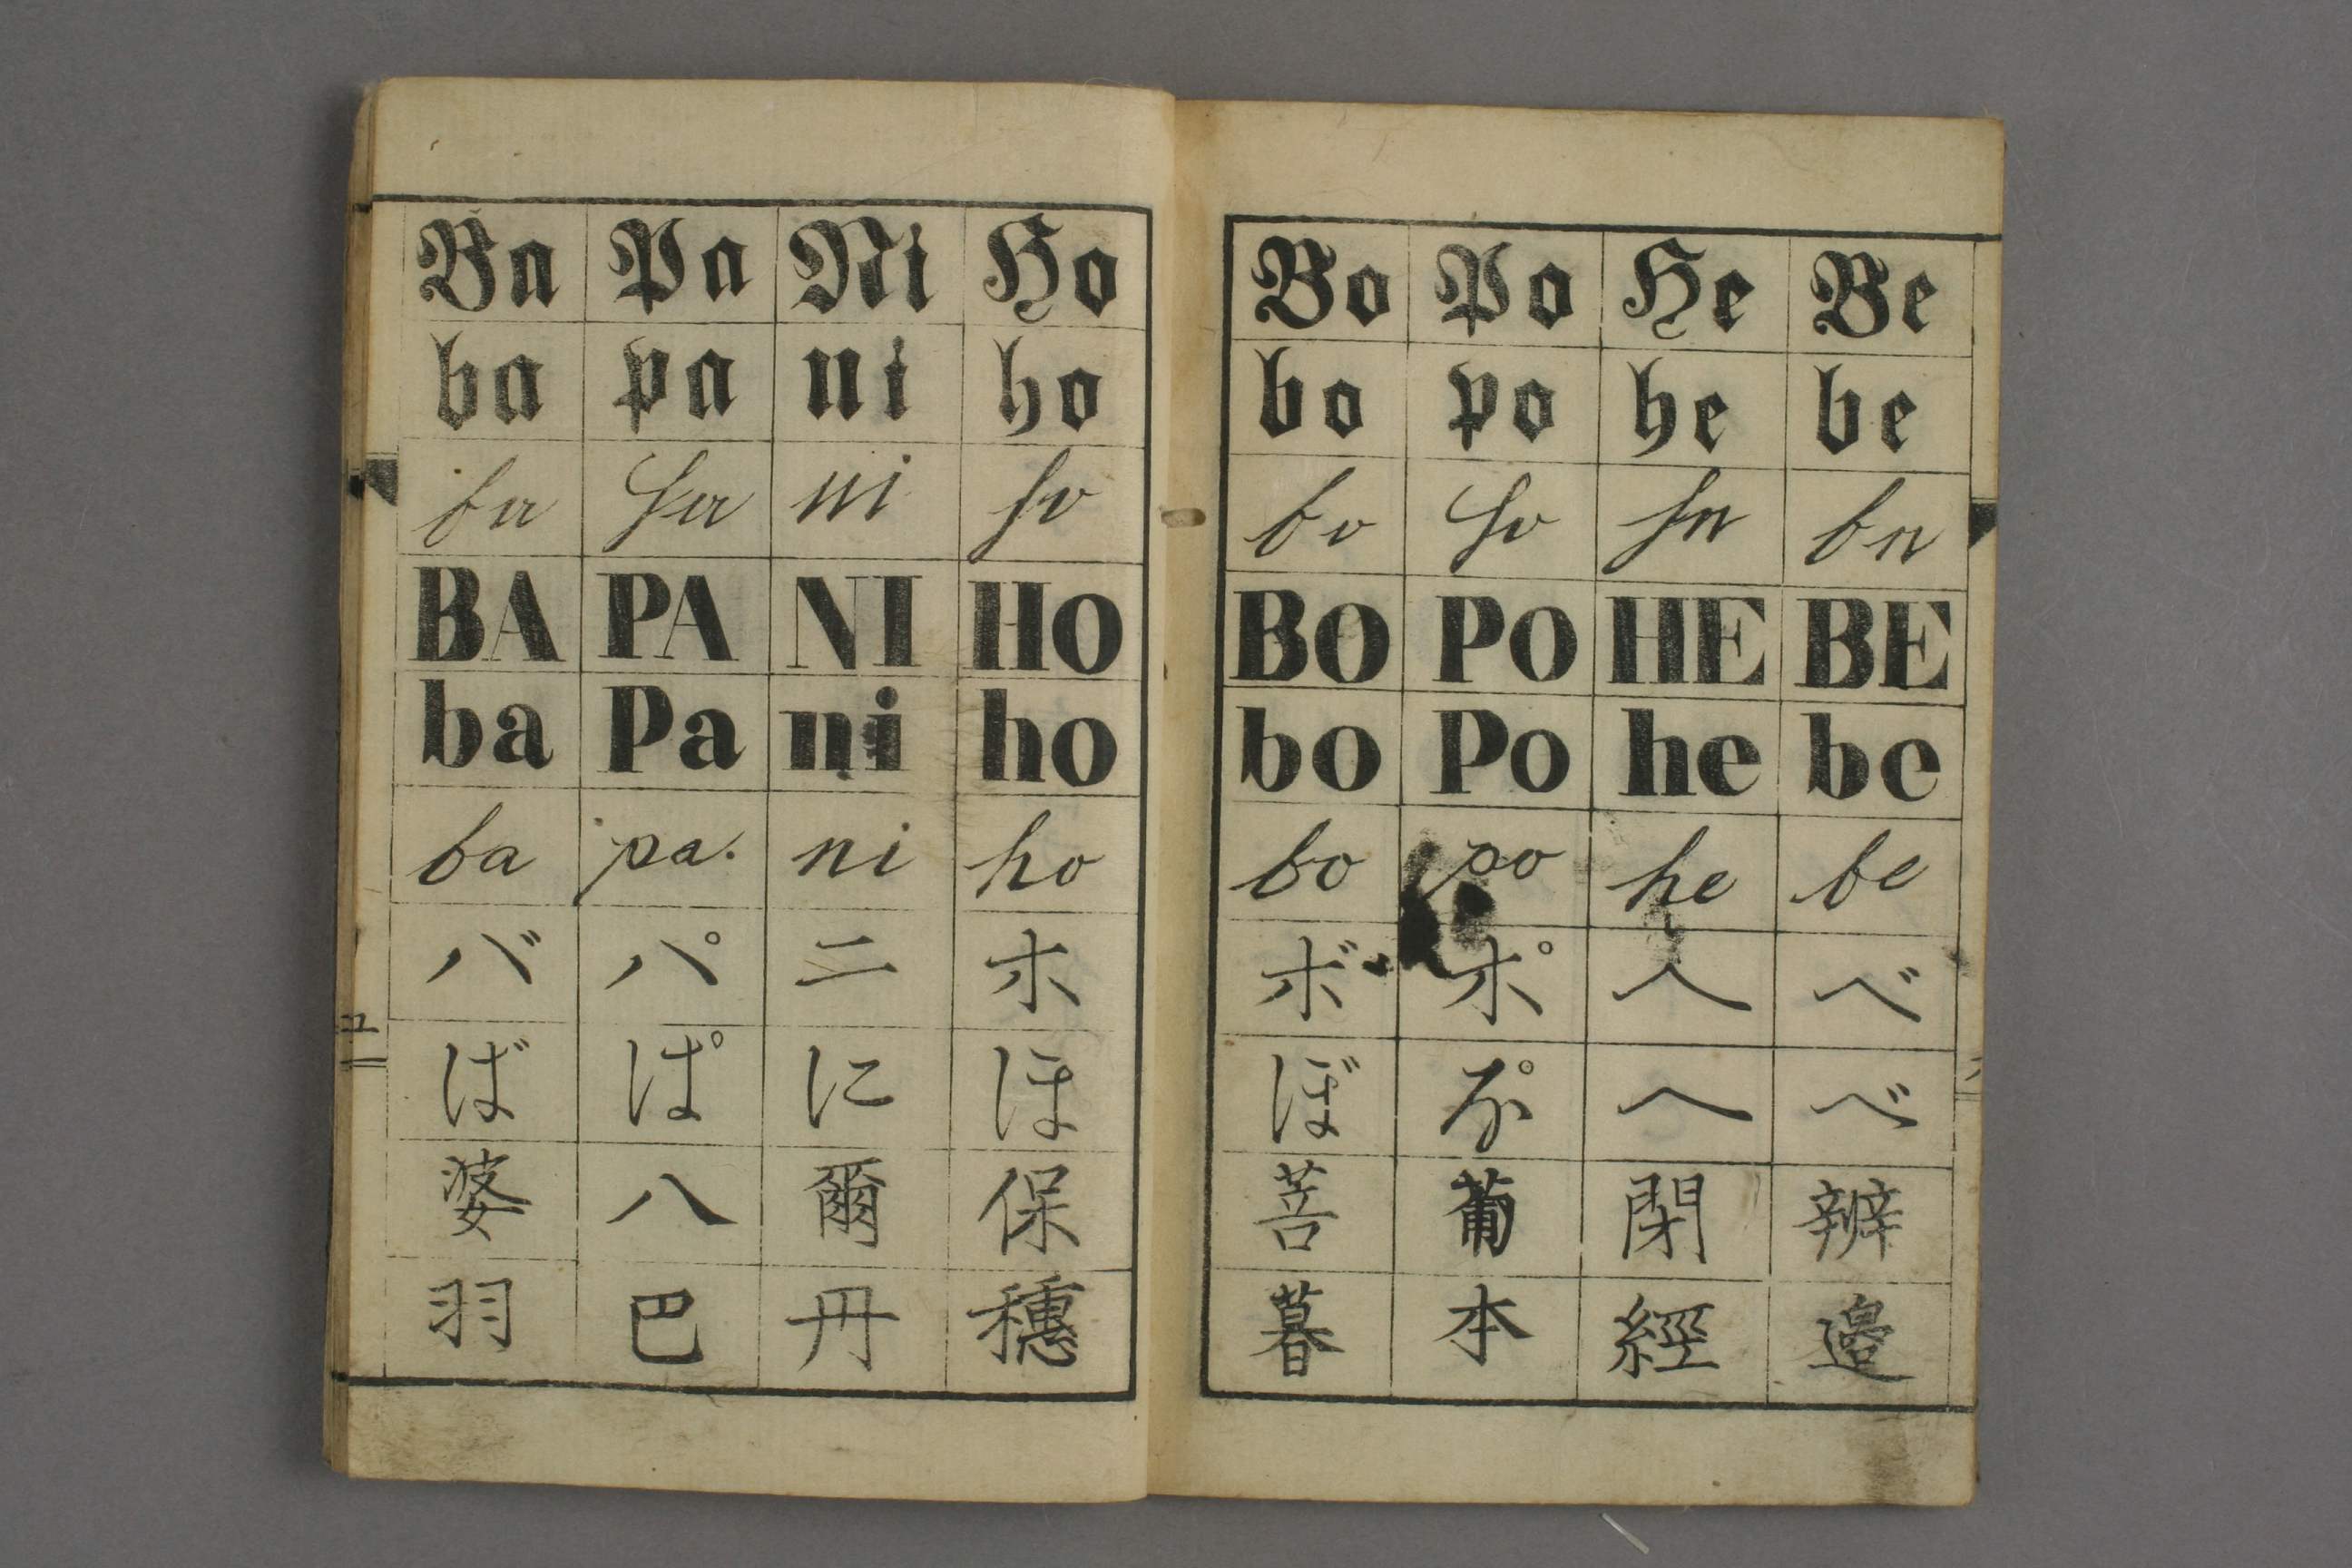 Ba Pa Ni Ho
ba pa ni ho
ba pa ni ho
BA PA NI HO
ba Pa ni ho
ba pa. ni ho
バ パ ニ ホ
ば ぱ に ほ
婆 八 爾 保
羽 巴 丹 穗
Bo Po He Be
bo po he be
bo po he be
BO PO HE BE
bo Po he be
bo po he be
ボ ポ ヘ ベ
ぼ へ べ
菩 葡 閇 辨
暮 本 經 邉